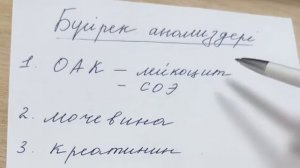 Бүйрек анализдері
1. ОАК – лейкоцит
– СОЭ
2. мочевина
3. креатинин